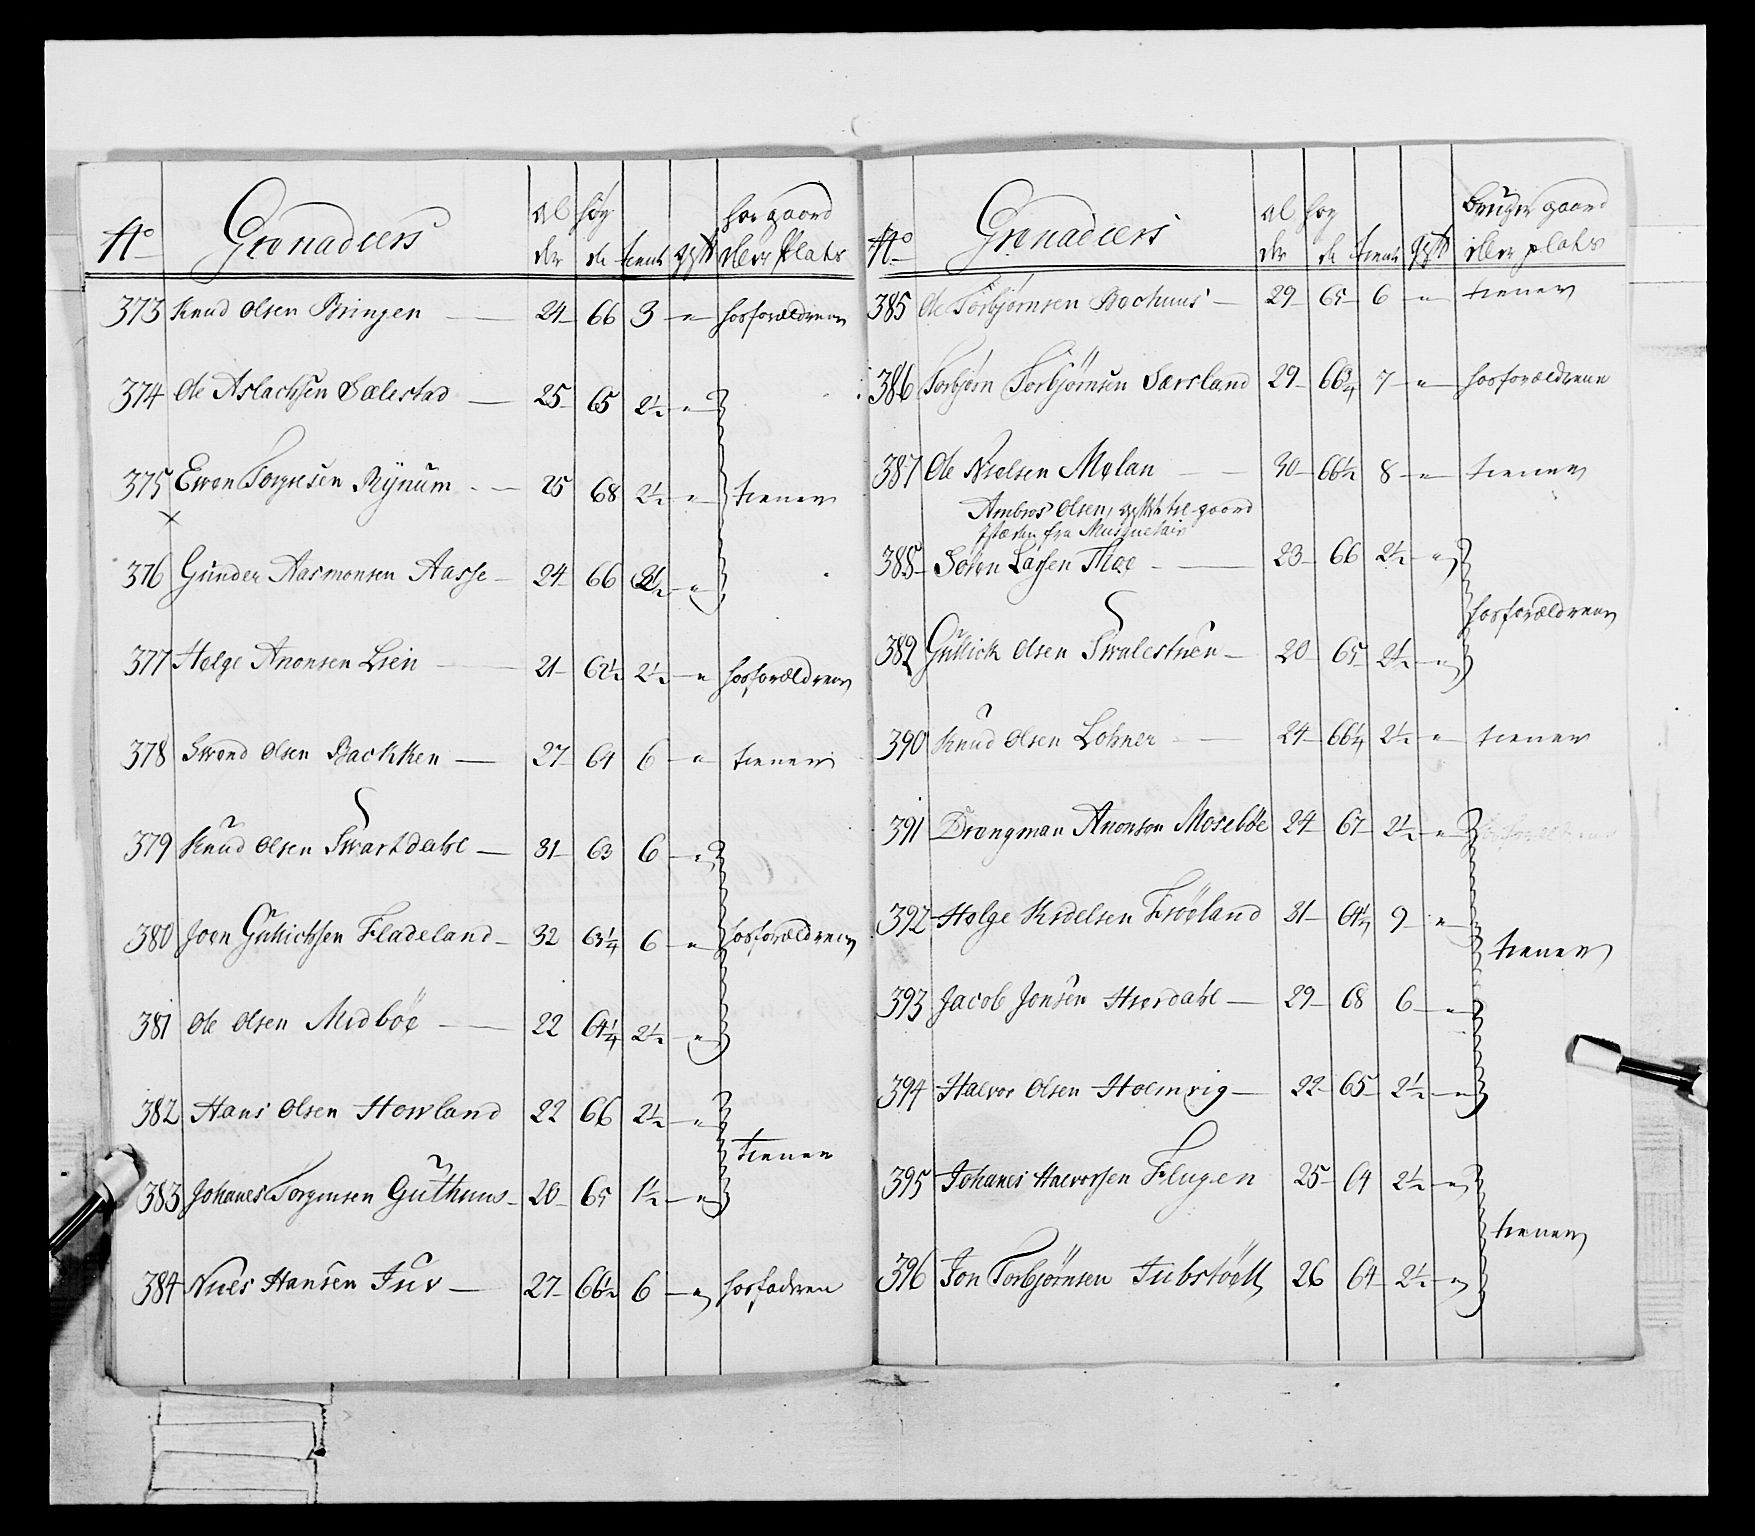 No Grenadiers al der høy de tient gift har gaard eller plats
373 Knud Olsen Bringen — 24 66 3 — " hosforældrene
374 Ole Aslachsen Sælestad — 25 65 2½ — "
375 Even Torgresen Rynum — 25 68 2½ — " tiener
376 Gunder Aasmonsen Aasse — 24 66 2½ — "
377 Helge Anonsen Lien — 21 62½ 2½ — " hosforældrene
378 Swend Olsen Backken — 27 64 6 — " tiener
379 Knud Olsen Swartdahl — 31 63 6 — "
380 Joen Gullichsen Fladeland — 32 63¼ 6 — " hosforældrene
381 Ole Olsen Midbøe — 22 64¼ 2½ — "
382 Hans Olsen Howland 22 66 2½ — "
tiener
383 Johanes Torgensen Guthuus — 20 65 1½ — "
384 Niels Hansen Juv — 27 66½ 6 — " hosfadren
No Grenadiers al der høy de tient gift bruger gaard eller plats
385 Ole Torbjørnsen Bochuus — 29 65 6 — " tiener
386 Torbjørn Torbjørnsen Særsland 29 66¾ 7 — " hosforældrene
387 Ole Nielsen Mølan — 30 66½ 8 — " tiener
Ambros Olsen, gift til gaard
Isteden fra Musquetair
388 Søren Larsen Thoe — 23 66 2½ — "
hosforældrene
389 Gullick Olsen Swalestuen — 20 65 2½ — "
390 Knud Olsen Lohner — 24 66¼ 2½ — " tiener
391 Drengman Anonson Mosebøe 24 67 2½ — "
392 Helge Kedelsen Frøeland 31 64¼ 9 — "
tiener
393 Jacob Jonsen Hierdahl — 29 68 6 — "
394 Halvor Olsen Holmvig — 22 65 2½ — "
395 Johanes Halvorsen Flugen 25 64 2½ — "
tiener
396 Jon Torbjørnsen Tubstøell 26 64 2½ — "